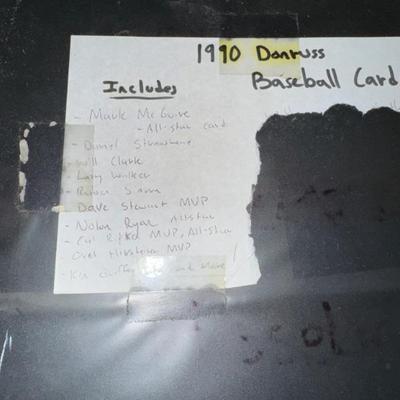 1990 Donruss
Baseball Card
Includes
- Mark McGwire
- All-Star Card
- Darryl Strawberry
- Will Clark
- Larry Walker
- Sosa
- Dave Stewart MVP
- Nolan Ryan All-Star
- Cal Ripken MVP, All-Star
Orel Hershiser MVP
- Ken and More